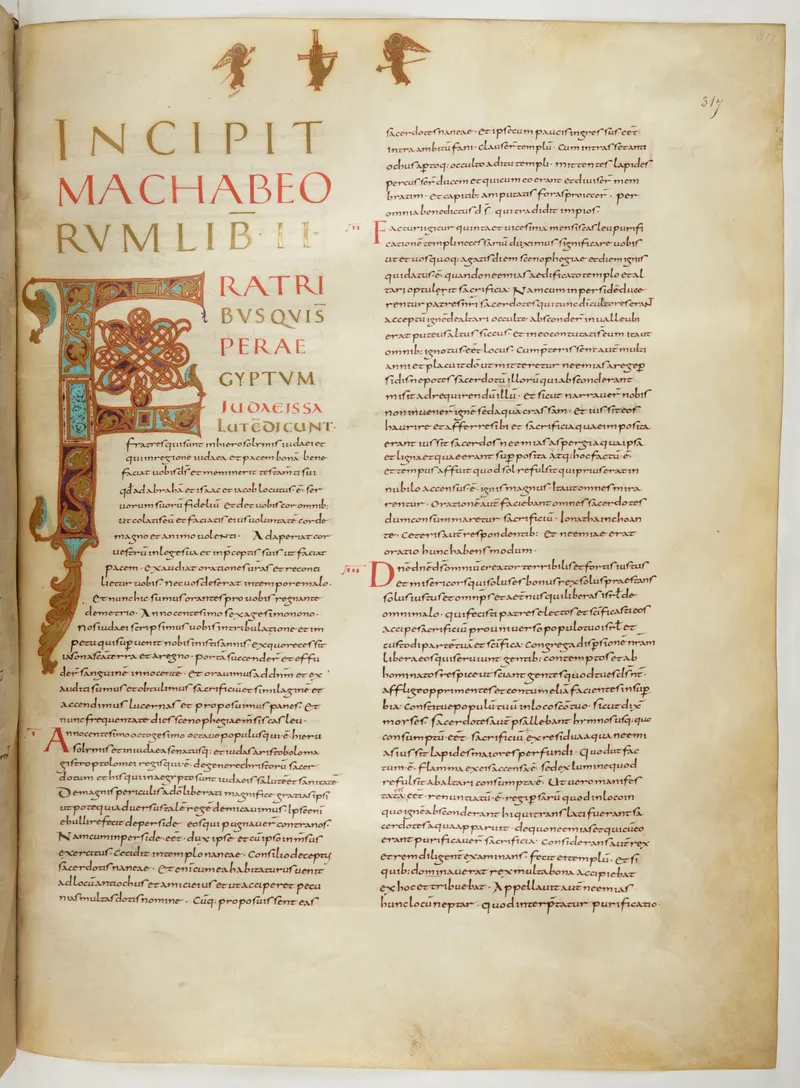 317
INCIPIT
MACHABEO
RVM LIB̄·II·
FRATRI
BVS QVI S̄
PER AE
GYPTVM
IUDAEIS SA
LUTĒ DICUNT·
fratres qui sunt in hierosolymis iudaei et
qui in regione iudaea et pacem bonā bene
faciat uobis d̄s et meminerit testam̄ti sui
qđ ad abrahā et isaac et iacob locutus ē· ser
uorum suorū fideliū· Et det uobis cor omnib;
ut colatis eū et faciatis eius uoluntatē corde
magno et animo uolenti· Adaperiat cor
uestrū in lege sua et in p̄ceptis suis ut faciat
pacem· Exaudiat orationes ur̄as et reconci
lietur uobis nec uos deserat in tempore malo·
Et nunc hic sumus orantes pro uobis regnante
demetrio· Anno centesimo sexagesimo nono·
nos iudaei scripsimus uobis in tribulatione et im
petu qui sup̄uenit nobis in istis annis ex quo recessit
iason a sc̄a terra et a regno· porta succender̄ et effu
der̄ sanguinē innocente· Et orauimus ad dn̄m et ex
auditi sumus et obtulimus sacrificiū et similaginē et
accendimus lucernas et proposuimus panes· Et
nunc frequentate dies scenophegiae m̄sis casleu·
Anno centesimo octogesimo octauo populus qui ē hiero
solymis et in iudaea senatusq; et iudas aristobolo ma
gistro ptolomei regis qui ē· de genere christorū sacer
dotum et his qui in aegypto sunt iudaeis salutē et sanitatē
De magnis periculis a dō liberati magnifice gratias ipsi
utpote qui aduersus talē regē dimicauimus· Ipse enī
ebullire fecit de perside· eos qui pugnauer̄ contra nos·
Nam cum in perside· eēt· dux ipse et cū ipso inm̄sus
exercitus· Cecidit in templo naneae· Consilio deceptus
sacerdotis naneae· Et enī cum ea habitaturus uenit
ad locū antiochus et amici eius et ut acciperet pecu
nias multas dotis nomine· Cūq; proposuissent eas
sacerdotes naneae· Et ipse cum paucis ingressus eēt·
intra ambitū fani· clauser̄ templū· Cum intrasset anti
ochus aptoq; occulto aditu templi· mittentes lapides
percusser̄ ducem et qui cum eo erant et diuiser̄ mem
bratim· Et capitib; amputatis foras proiecer̄· per
omnia benedictus d̄s qui tradidit impios·
Facturi igitur quinta et uicesima mensis casleu purifi
cationē templi necessariū duximus significare uobis
ut et uos quoq; agatis diem scenophegiae et diem ignis
qui datus ē· quando neemias aedificato templo et al
tari optulerit sacrificia· Nam cum in persidē duce
rentur patres nr̄i sacerdotes qui tunc dī cultores erant
acceptū ignē de altari occulte absconder̄ in ualle ubi
erat puteus altus et siccus· Et in eo contutati s̄ eum ita ut
omnib; ignotus eēt locus· Cum p̄teris̄sent aut̄ multi
anni et placuit dō ut mitteretur neemias a rege p̄
sidis nepotes sacerdotū illorū qui absconderant
misit ad requirendū illū· et sicut narrauer̄ nobis
non inuener̄ ignē sed aquā crassam· Et iussit eos
haurire et afferre sibi et sacrificia quae imposita
erant iussit sacerdos neemias aspergi aqua ipsa
et ligna et quae erant sup̄posita atq; hoc factū ē·
et tempus affuit quod sol refulsit qui prius erat in
nubilo accensus ē· ignis magnus ita ut omnes mira
rentur· Orationē aut̄ faciebant omnes sacerdotes
dum consummaretur sacrificiū· Ionatha inchoan
te· Ceteris aut̄ respondentib; Et neemiae erat
oratio hunc habens modum·
Dn̄e dn̄s omniū creator terribilis et fortis iustus
et misericors qui solus es bonus rex solus praestans
solus iustus et omnp̄s et aet̄nus qui liberas isrl̄ de
omni malo· qui fecisti patres electos et sc̄ificasti eos
accipe sacrificiū pro uniuerso populo tuo isrl̄ et
custodi partē tuā et sc̄ifica· Congrega disp̄sionē nr̄am
libera eos qui seruiunt gentib; contemptos et ab
hominatos respice ut sciant gentes quod tu es d̄s nr̄·
Afflige opprimentes et contumeliā facientes in sup̄
bia· Constitue populū tuū in loco scō tuo· sicut dix̄
moyses· Sacerdotes aut̄ psallebant hymnos usq; quo
consumptū eēt· Sacrificiū ex residua aqua neemi
as iussit lapides maiores perfundi· Quod ut fac
tum ē· flamma ex eis accensa ē· sed ex lumine quod
refulsit ab altari consumpta ē· Ut uero manifes
tata eēt renuntiatū· ē· regi p̄sarū quod in loco in
quo ignē absconderant hi qui translati fuerant sa
cerdotes aqua apparuit· de quo neemias et qui cū eo
erant purificauer̄ sacrificia· Considerans aut̄ rex
et rem diligent̄ examinans· fecit ei templū· Et si
quib; donauerat rex multa bona accipiebat
ex hoc et tribuebat· Appellauit aut̄ neemias
hunc locū neptar· quod interp̄tatur purificatio·